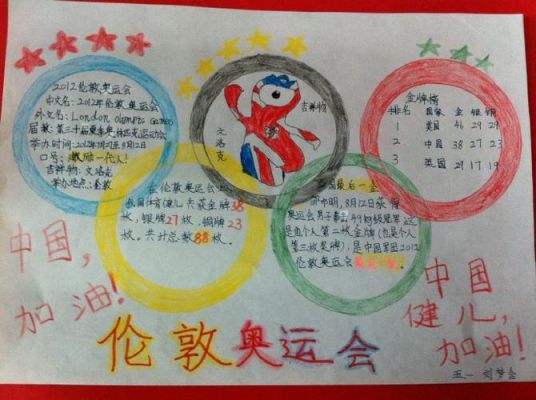 2012伦敦奥运会
中文名：2012年伦敦奥运会
外文名：London Olympic Games
届数：第三十届夏季奥林匹克运动会
举办时间：2012年7月27至8月12日
口号：激励一代人！
吉祥物：文洛克
举办地点：伦敦
吉祥物
文洛克
金牌榜
排名 国家 金 银 铜
1 美国 46 29 29
2 中国 38 27 23
3 英国 29 17 19
在伦敦奥运会上
我国体育健儿共获金牌38
枚，银牌27枚，铜牌23
枚。共计总数88枚。
中国最后一金
邹市明，8月12日获得
奥运会男子拳击49公斤级冠军，这
是他个人第二枚金牌（也是个人
第三枚奖牌），是中国军团2012
伦敦奥运会
中国，
加油！
中国
健儿，
加油！
伦敦奥运会
五一 刘梦会